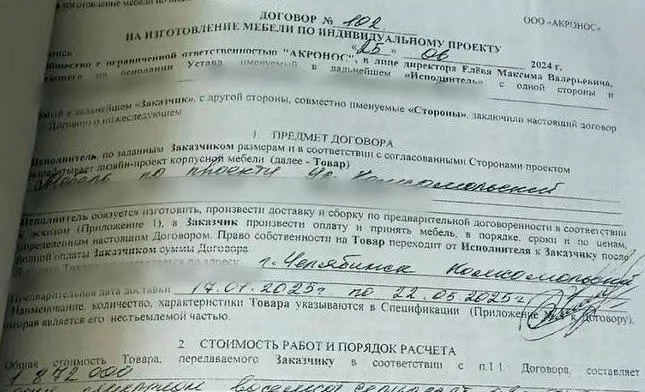 ООО «АКРОНОС»
ДОГОВОР № 102
НА ИЗГОТОВЛЕНИЕ МЕБЕЛИ ПО ИНДИВИДУАЛЬНОМУ ПРОЕКТУ
«25» 06 2024 г.
Общество с ограниченной ответственностью "АКРОНОС", в лице директора Елёва Максима Валерьевича,
на основании Устава, именуемый в дальнейшем «Исполнитель» с одной стороны и
в дальнейшем «Заказчик», с другой стороны, совместно именуемые «Стороны», заключили настоящий договор
Договор о нижеследующем
1 ПРЕДМЕТ ДОГОВОРА
Исполнитель, по заданным Заказчиком размерам и в соответствии с согласованными Сторонами проектом
разрабатывает дизайн-проект корпусной мебели (далее - Товар)
Мебель по проекту
Исполнитель обязуется изготовить, произвести доставку и сборку по предварительной договоренности в соответствии
с эскизом (Приложение 1), а Заказчик произвести оплату и принять мебель, в порядке, сроки и по ценам,
определенным настоящим Договором. Право собственности на Товар переходит от Исполнителя к Заказчику после
полной оплаты Заказчиком суммы Договора.
по адресу г. Челябинск Комсомольский
Предварительная дата доставки 17.01.2025г по 22.05.2025г
Наименование, количество, характеристики Товара указываются в Спецификации (Приложение к Договору),
которая является его неотъемлемой частью.
2 СТОИМОСТЬ РАБОТ И ПОРЯДОК РАСЧЕТА
Общая стоимость Товара, передаваемого Заказчику в соответствии с п.1.1 Договора, составляет
1 872 000